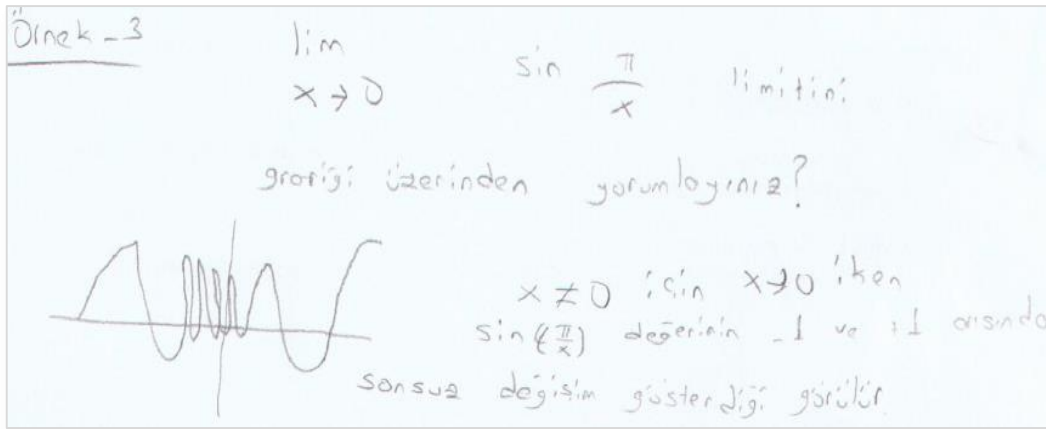 Örnek-3
lim x→0 sin π/x limitini
grafiği üzerinden yorumlayınız?
x ≠ 0 için x→0 iken
sin(π/x) değerinin -1 ve +1 arasında
sonsuz değişim gösterdiği görülür